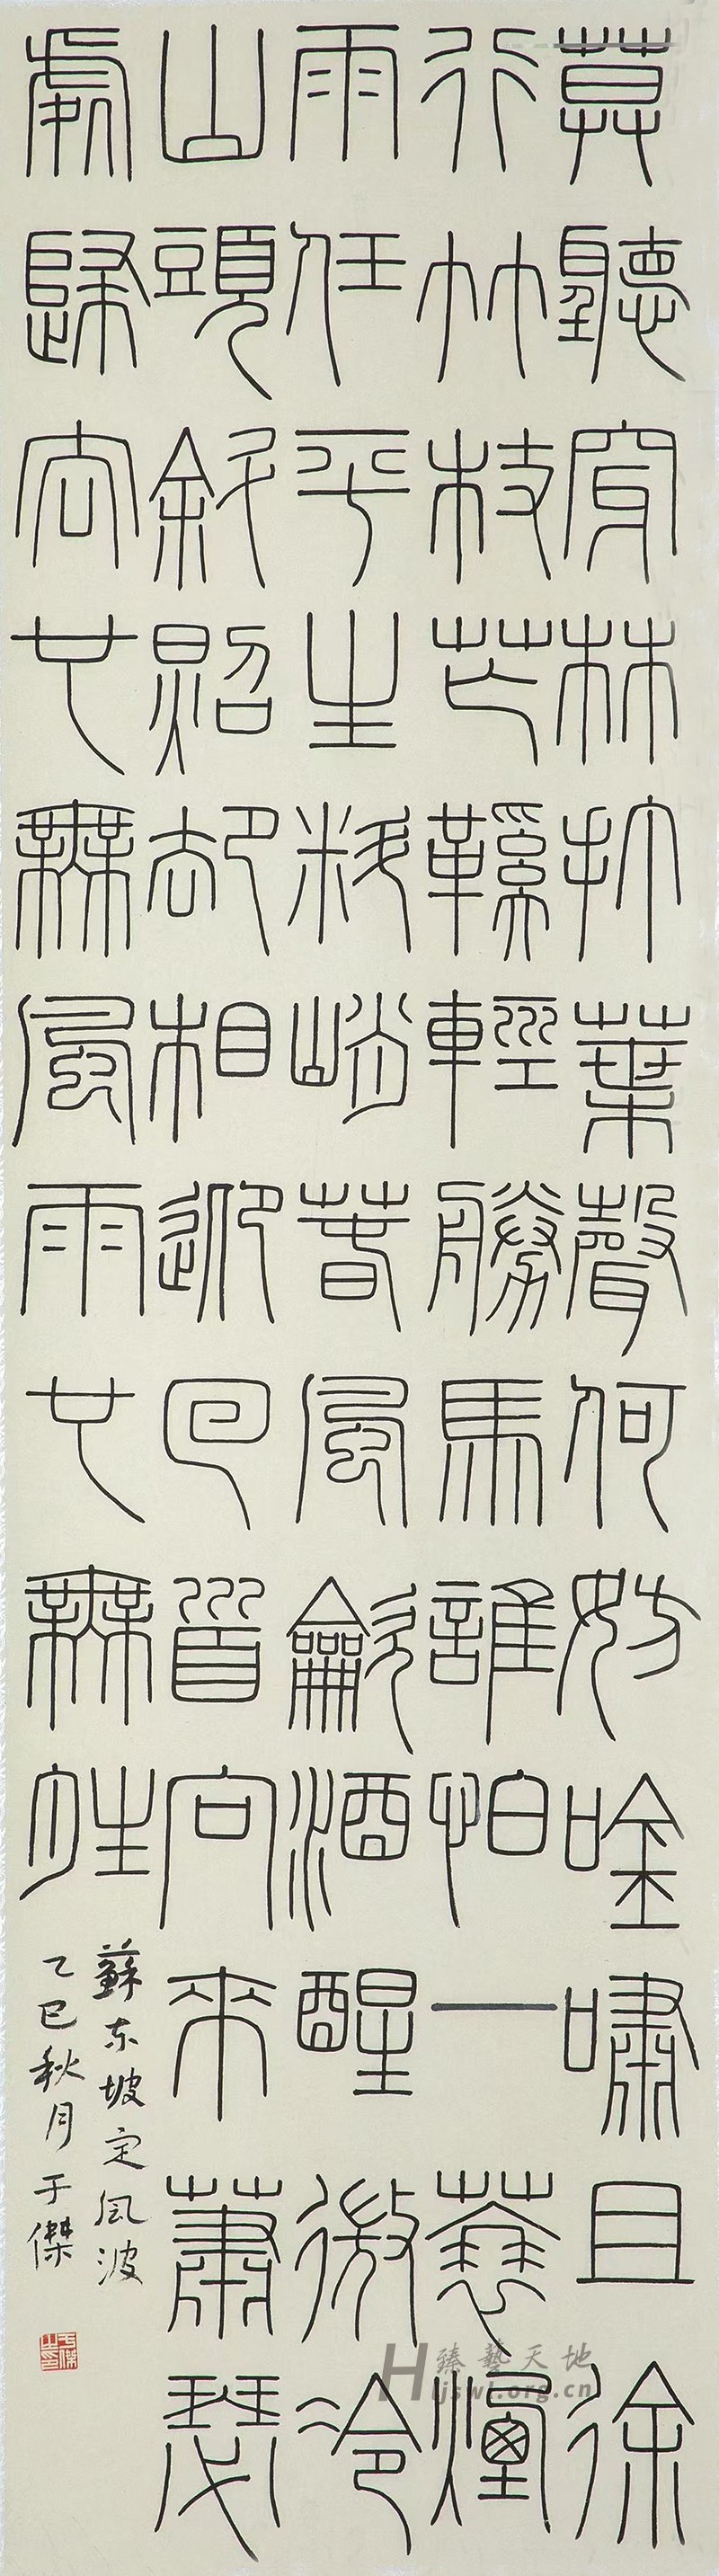 莫聽穿林打葉聲何妨吟嘯且徐
行竹杖芒鞋輕勝馬誰怕一蓑煙
雨任平生料峭春風吹酒醒微冷
山頭斜照却相迎回首向來蕭瑟
處歸去也無風雨也無晴
蘇东坡定風波
乙巳秋月于傑
于傑之印
臻藝天地
Hljswl.org.cn